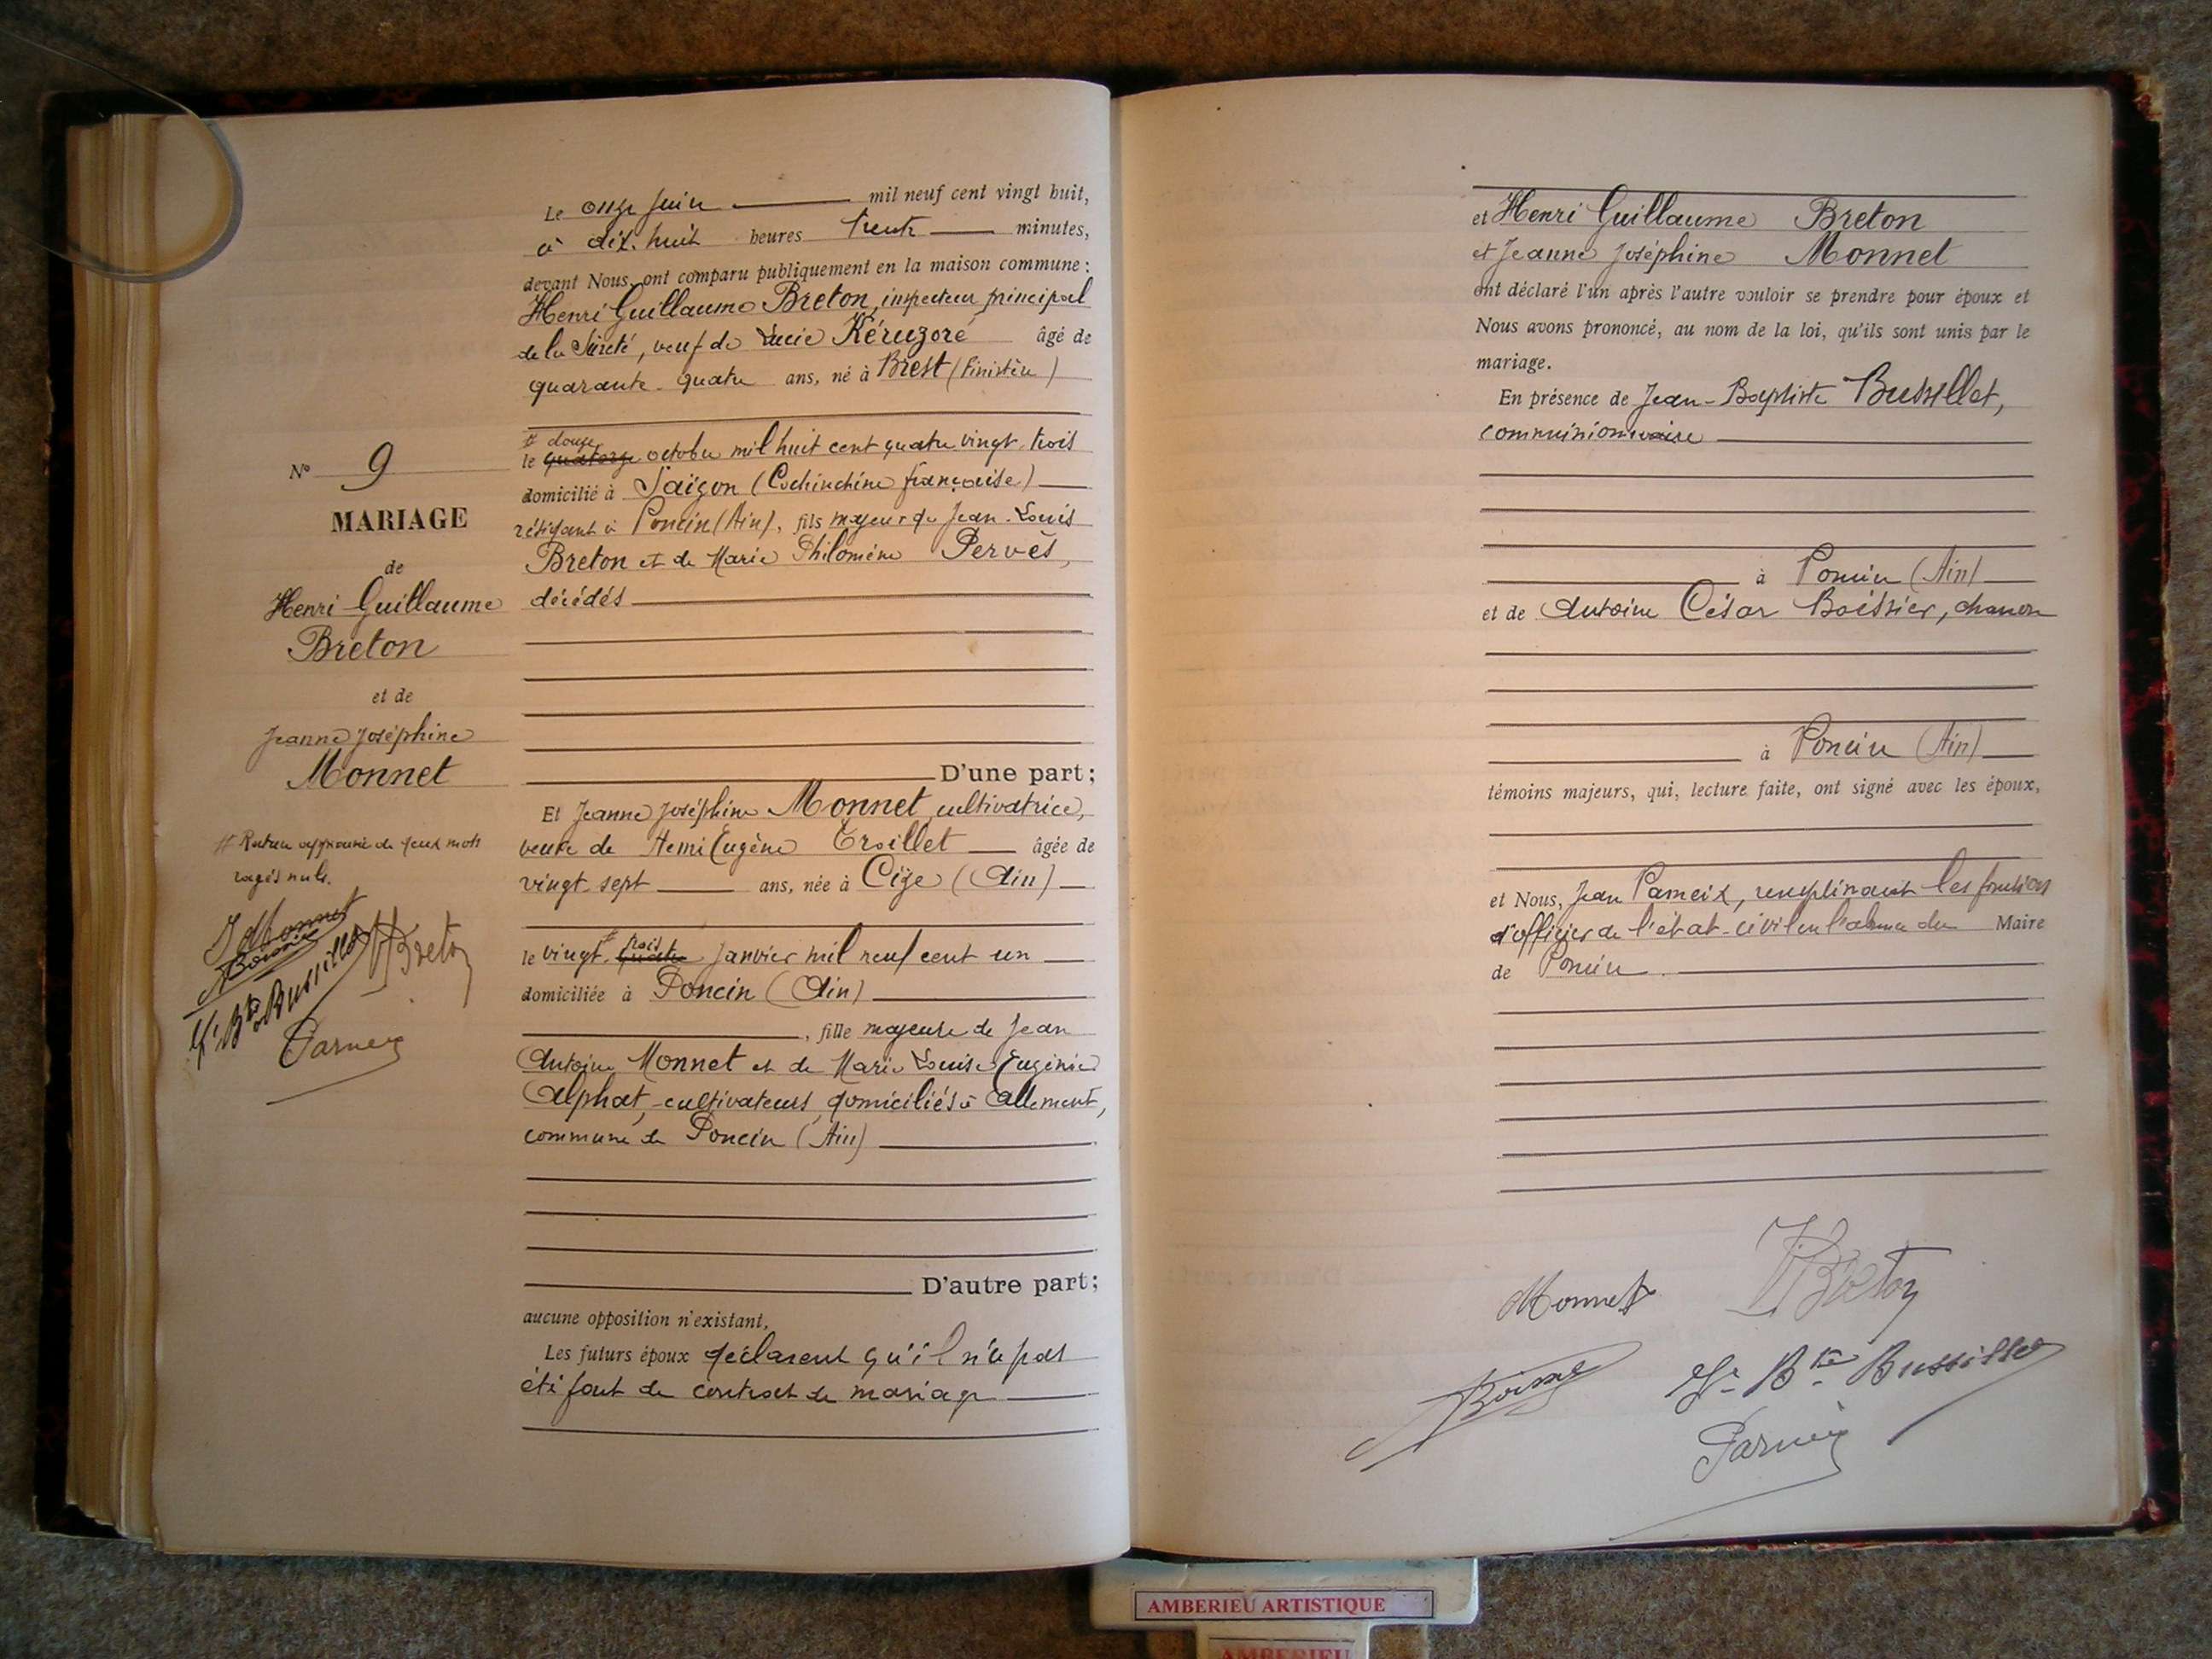 Le onze juin mil neuf cent vingt huit,
à dix-huit heures trente minutes,
devant Nous, ont comparu publiquement en la maison commune :
Henri Guillaume Breton, inspecteur principal
de la Sûreté, veuf de Lucie Kéruzoré âgé de
quarante-quatre ans, né à Brest (Finistère)
# douze
le quatorze octobre mil huit cent quatre vingt-trois
domicilié à Saïgon (Cochinchine française)
résidant à Poncin (Ain), fils majeur de Jean-Louis
Breton et de Marie Philomène Pervès,
décédés
D'une part;
Et Jeanne Joséphine Monnet, cultivatrice,
veuve de Henri Eugène Troillet âgée de
vingt-sept ans, née à Cize (Ain)
# trois
le vingt-quatre janvier mil neuf cent un
domiciliée à Poncin (Ain)
, fille majeure de Jean
Antoine Monnet et de Marie Louise Eugénie
Alphat, cultivateurs, domiciliés à Allement,
commune de Poncin (Ain)
D'autre part;
aucune opposition n'existant,
Les futurs époux déclarent qu'il n'a pas
été fait de contrat de mariage
N° 9
MARIAGE
de
Henri Guillaume
Breton
et de
Jeanne Joséphine
Monnet
# Rature approuvée de deux mots
rayés nuls.
J Monnet
HBreton
Jn Bte Bussillet
et Henri Guillaume Breton
et Jeanne Joséphine Monnet
ont déclaré l'un après l'autre vouloir se prendre pour époux et
Nous avons prononcé, au nom de la loi, qu'ils sont unis par le
mariage.
En présence de Jean-Baptiste Bussillet,
commissionnaire
à Poncin (Ain)
et de Antoine César Boissier, charron
à Poncin (Ain)
témoins majeurs, qui, lecture faite, ont signé avec les époux,
et Nous, Jean Parneix, remplissant les fonctions
d'officier de l'état-civil en l'absence du Maire
de Poncin.
Monnet
HBreton
Jn Bte Bussillet
Parneix
AMBERIEU ARTISTIQUE
AMBERIEU